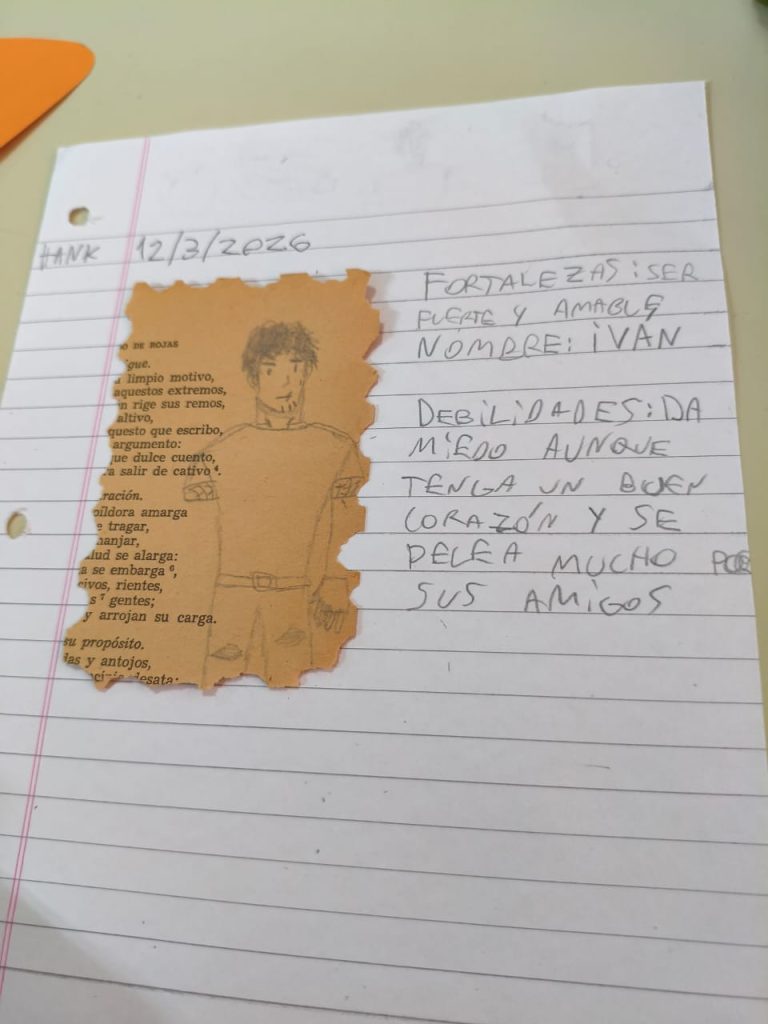 HANK 12/3/2026
FORTALEZAS: SER
FUERTE Y AMABLE
NOMBRE: IVAN
DEBILIDADES: DA
MIEDO AUNQUE
TENGA UN BUEN
CORAZÓN Y SE
PELEA MUCHO POR
SUS AMIGOS
DO DE ROJAS
gue.
limpio motivo,
aquestos extremos,
n rige sus remos,
altivo,
questo que escribo,
argumento:
ue dulce cuento,
a salir de cativo⁴.
ración.
píldora amarga
e tragar,
manjar,
lud se alarga:
a se embarga⁶,
civos, rientes,
s⁷ gentes;
y arrojan su carga.
su propósito.
las y antojos,
desata: